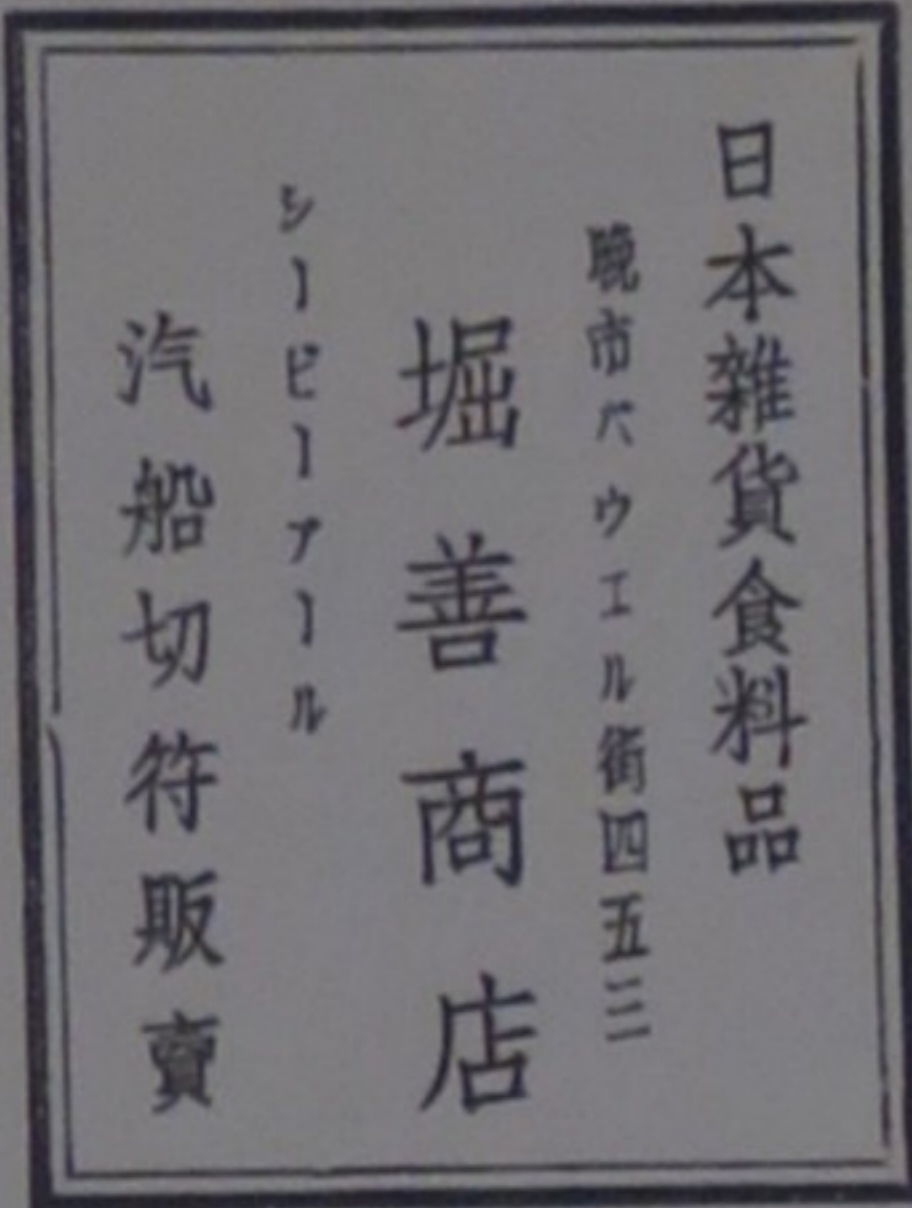 日本雑貨食料品
晩市パウエル街四五三
堀善商店
シーピーアール
汽船切符販賣